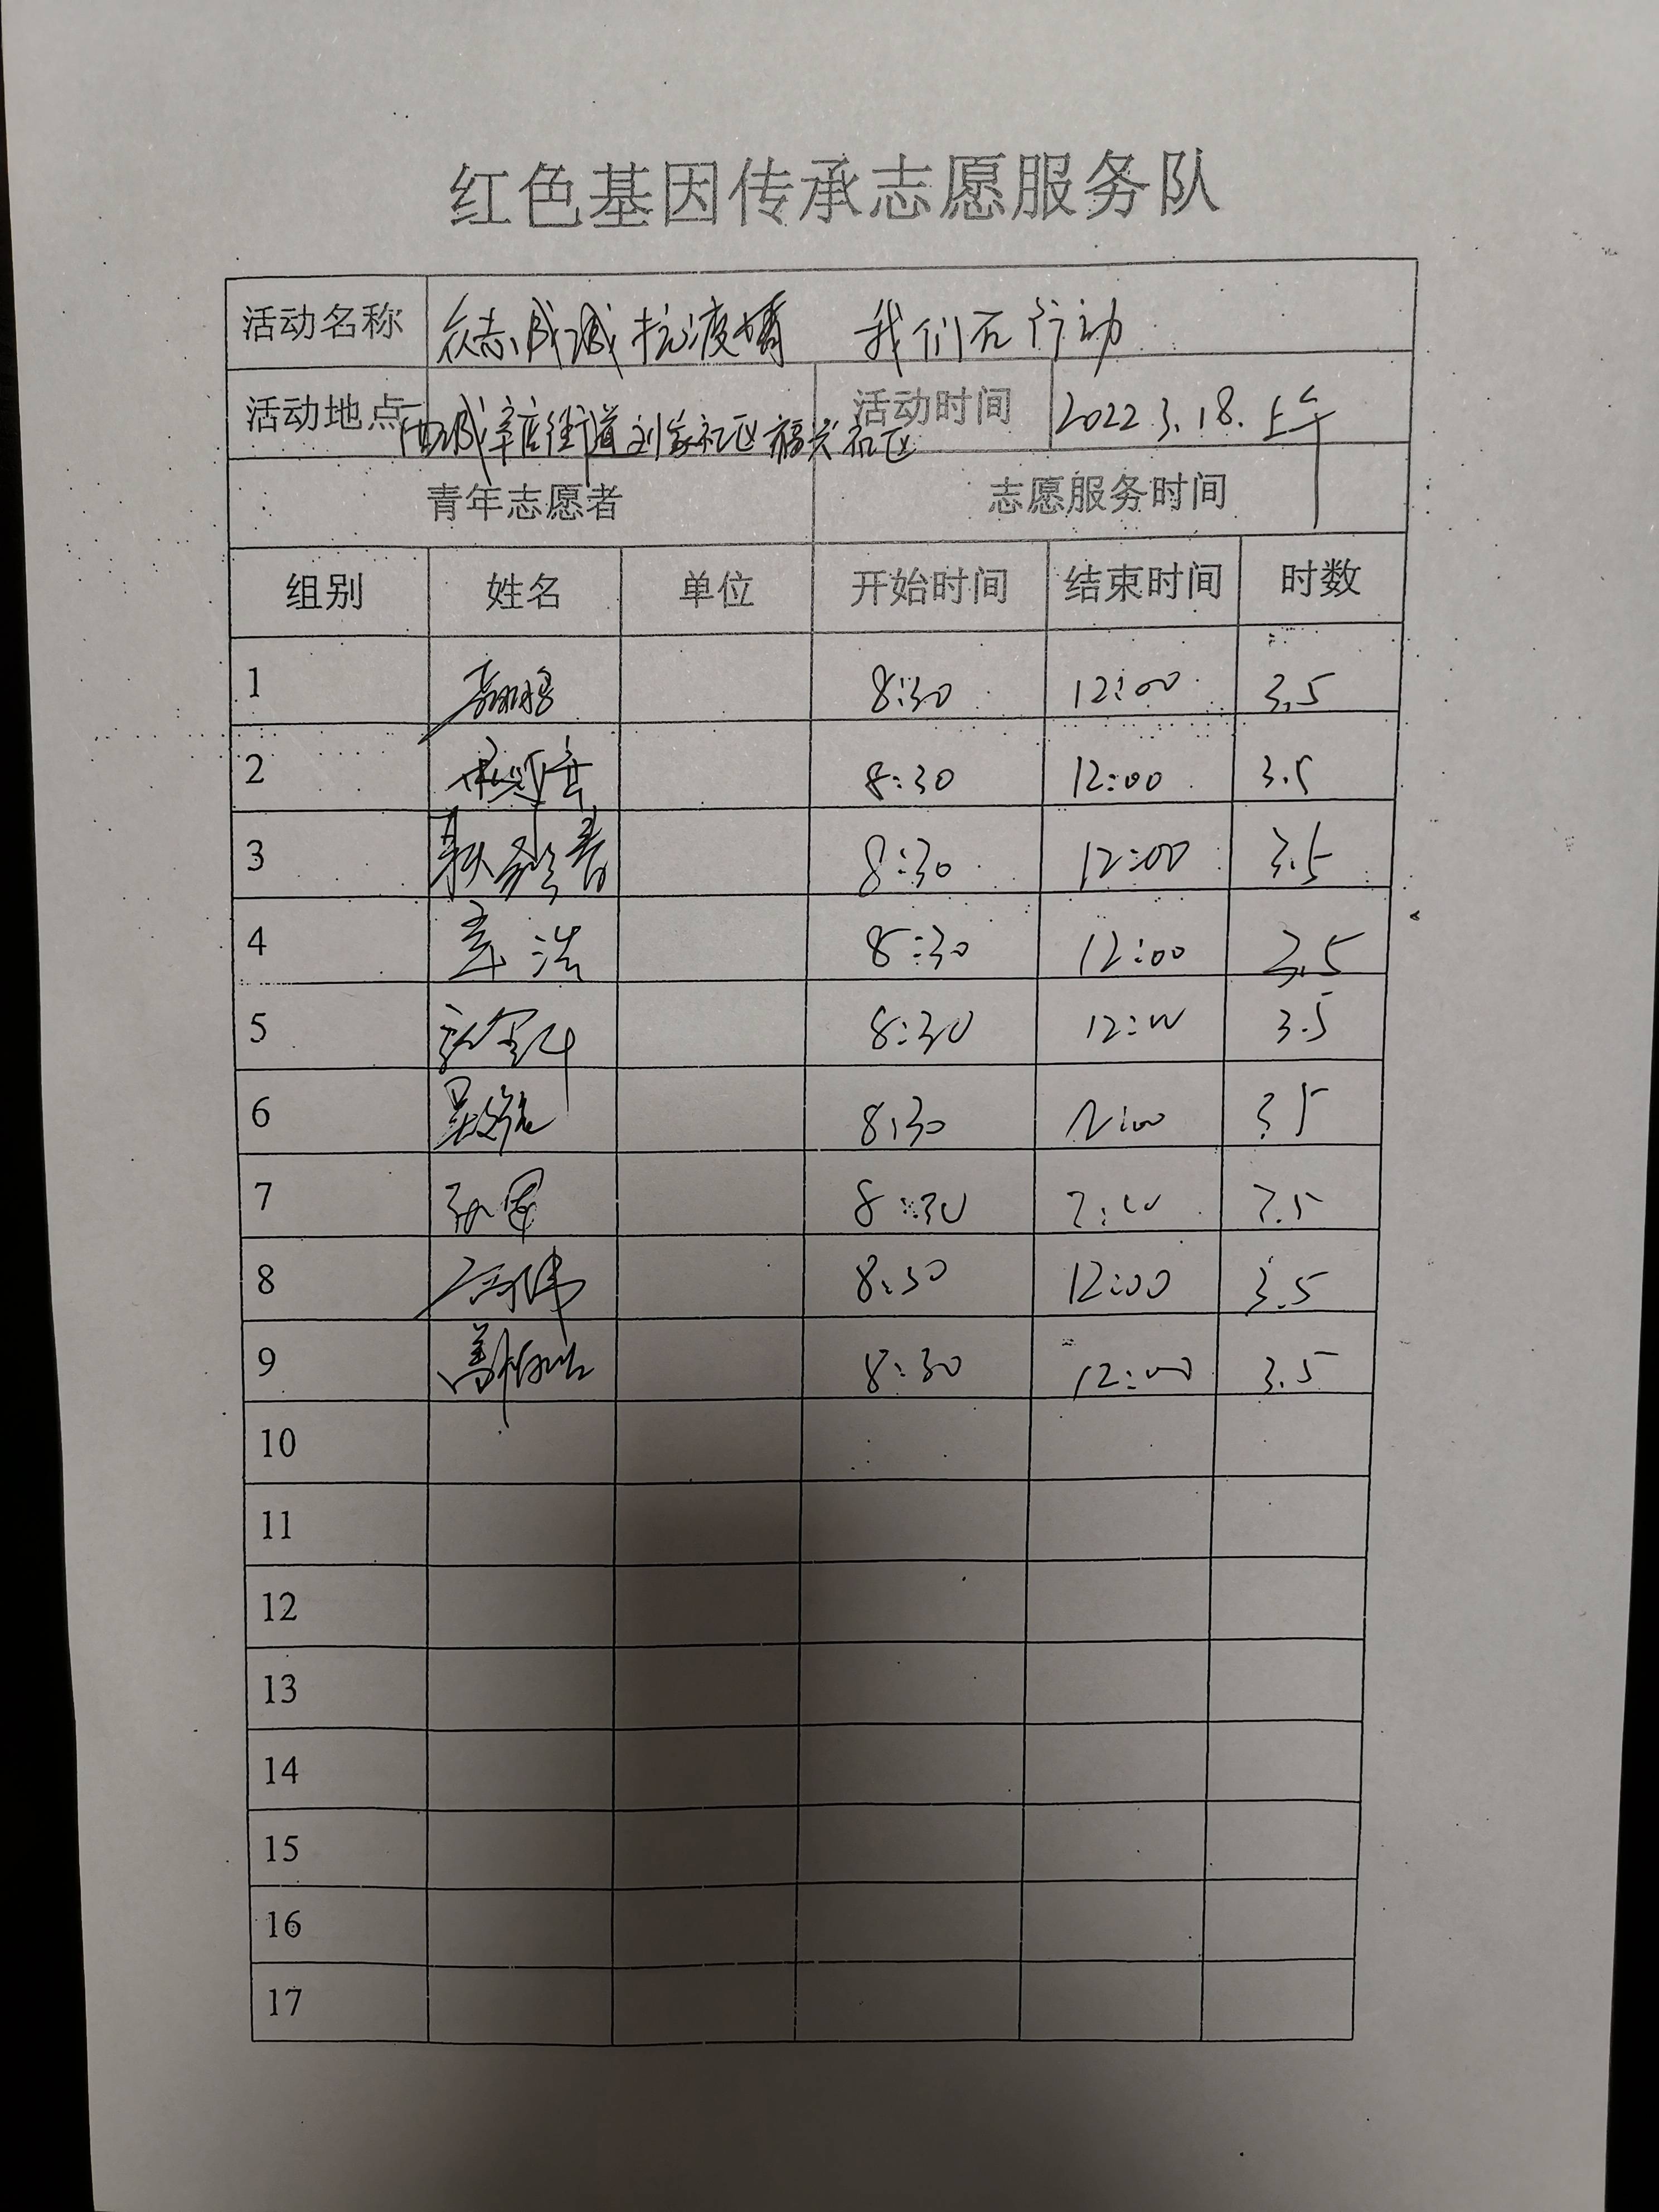 红色基因传承志愿服务队
活动名称 众志成城抗疫情 我们在行动
活动地点 西城辛店街道刘家社区福兴社区 活动时间 2022.3.18.上午
青年志愿者 志愿服务时间
组别 姓名 单位 开始时间 结束时间 时数
1 8:30 12:00 3.5
2 8:30 12:00 3.5
3 8:30 12:00 3.5
4 浩 8:30 12:00 3.5
5 8:30 12:00 3.5
6 8:30 12:00 3.5
7 8:30 3.5
8 8:30 12:00 3.5
9 8:30 12:00 3.5
10
11
12
13
14
15
16
17